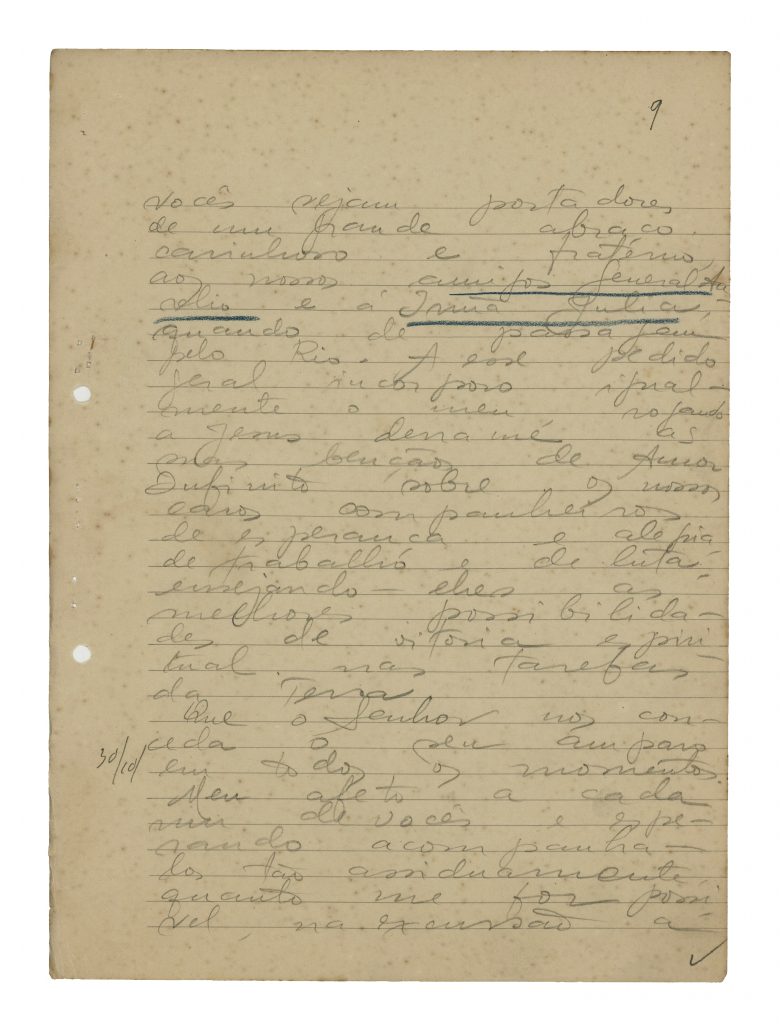 9
vocês sejam portadores
de um grande abraço
carinhoso e fraterno
aos nossos amigos General Au-
relio e á Irmã Julia,
quando de passagem
pelo Rio. A esse pedido
geral incorporo igual-
mente o meu rogando
a Jesus derrame as
suas bençãos de Amor
Infinito sobre os nossos
caros companheiros
de esperança e alegria
de trabalho e de luta
ensejando-lhes as
melhores possibilida-
des de vitoria espiri
tual nas tarefas
da Terra.
Que o Senhor nos con-
ceda o seu amparo
30/10/
em todos os momentos.
Meu afeto a cada
um de vocês e espe-
rando acompanha-
los tão assiduamente
quanto me for possi
vel, na excursão á